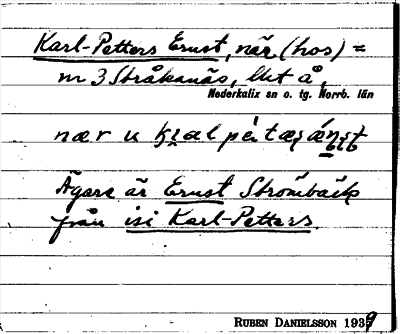 Karl-Petters Ernst, när (hos) =
m 3 Stråkanäs,
Nederkalix sn o. tg. Norrb. län
nær
Ägare är Ernst Strömbäck
från isi Karl-Petters.
RUBEN DANIELSSON 1939